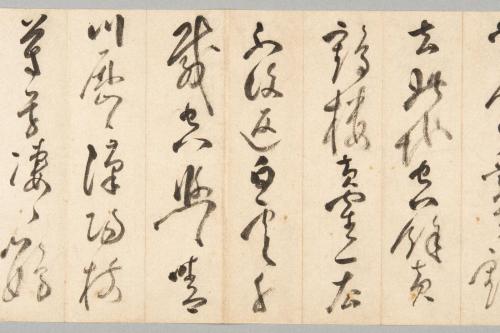 去此地空餘黃
鶴樓黃鶴一去
不復返白雲千
載空悠々晴
川歷々漢陽樹
草淒々鸚